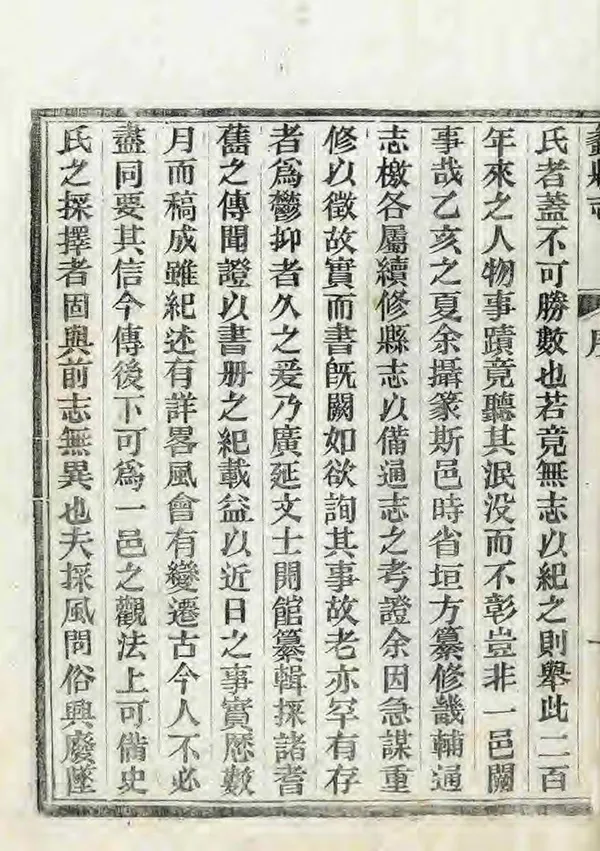 蠡縣志
序
氏者蓋不可勝數也若竟無志以紀之則舉此二百
年來之人物事蹟竟聽其泯没而不彰豈非一邑闕
事哉乙亥之夏余攝篆斯邑時省垣方纂修畿輔通
志檄各屬續修縣志以備通志之考證余因急謀重
修以徵故實而書旣闕如欲詢其事故老亦罕有存
者爲鬱抑者久之爰乃廣延文士開館纂輯採諸耆
舊之傳聞證以書册之紀載益以近日之事實歷數
月而稿成雖紀述有詳畧風會有變遷古今人不必
盡同要其信今傳後下可爲一邑之觀法上可備史
氏之採擇者固與前志無異也夫採風問俗興廢墜